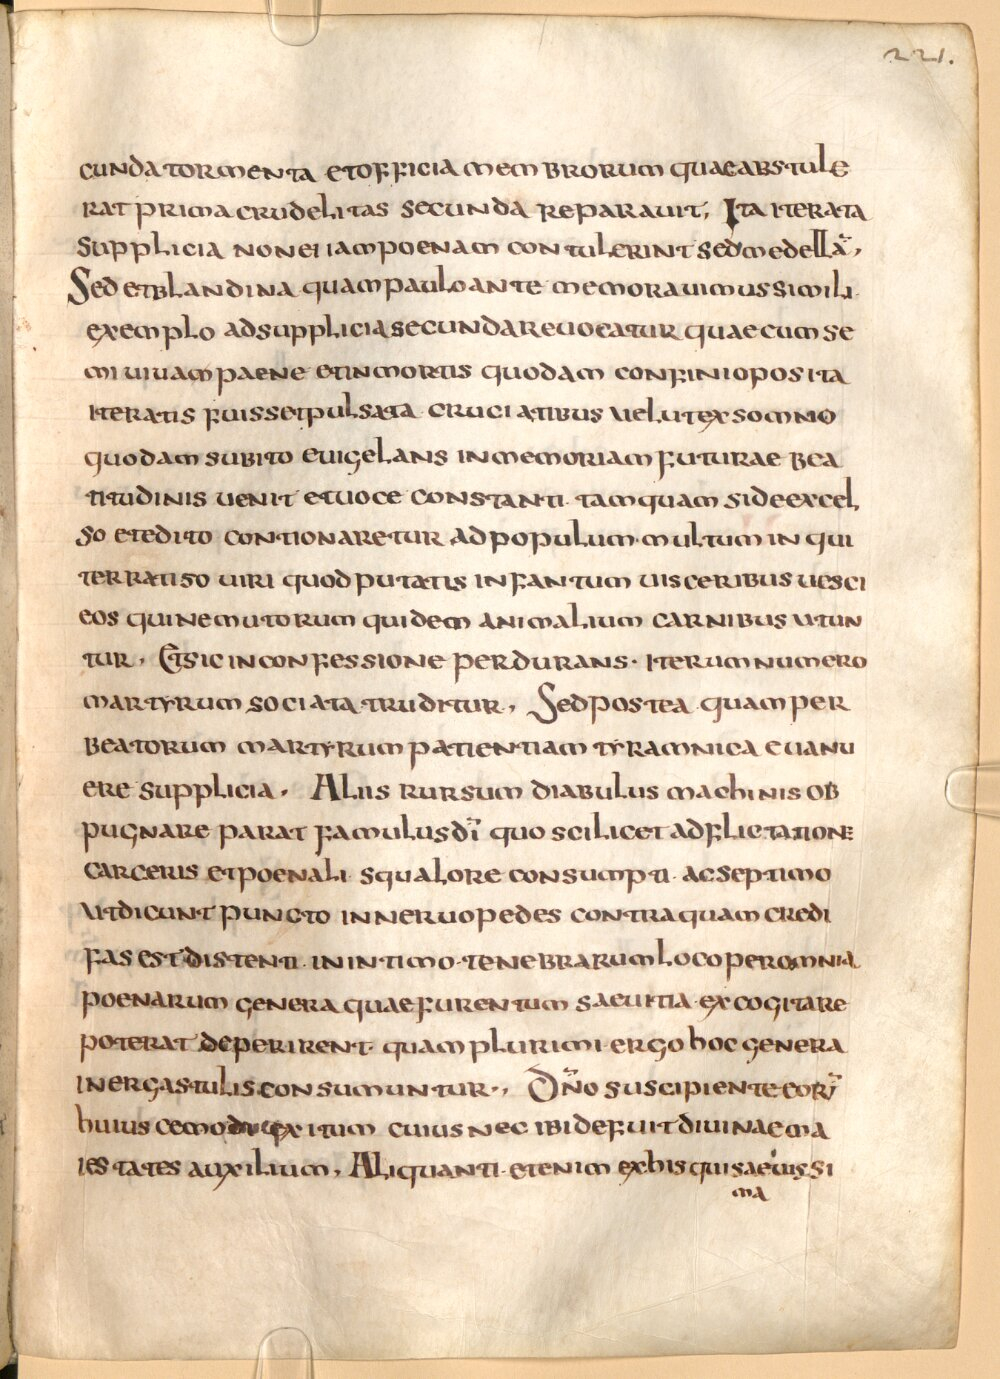 221.
cunda tormenta et officia membrorum quae abstule
rat prima crudelitas secunda reparauit; Ita iterata
supplicia non etiam poenam contulerint sed medellā,
Sed et blandina quam paulo ante memorauimus simili
exemplo ad supplicia secunda reuocatur quae cum se
miuiuam paene et in mortis quodam confinio posita
iteratis fuisset pulsata cruciatibus uelut ex somno
quodam subito euigelans in memoriam futurae bea
titudinis uenit et uoce constanti tamquam si de excel
so et edito contionaretur ad populum multum inqui
t erratis o uiri quod putatis infantum uisceribus uesci
eos qui ne mutorum quidem animalium carnibus utun
tur, Et sic in confessione perdurans. iterum numero
martyrum sociata truditur, Sed postea quam per
beatorum martyrum patientiam tyramnica euanu
ere supplicia. Aliis rursum diabulus machinis ob
pugnare parat famulus dī quo scilicet adflictatione
carceris et poenali squalore consumpti ac septimo
ut dicunt puncto in neruo pedes contra quam credi
fas est distenti in intimo tenebrarum loco per omnia
poenarum genera quae furentum saeuitia excogitare
poterat deperirent quam plurimi ergo hoc genera
in ergastulis consumuntur., Dn̄o suscipiente eorꝝ
huiuscemodi exitum cuius nec ibi defuit diuinae ma
iestates auxilium, Aliquanti etenim ex his qui saeuissi
ma